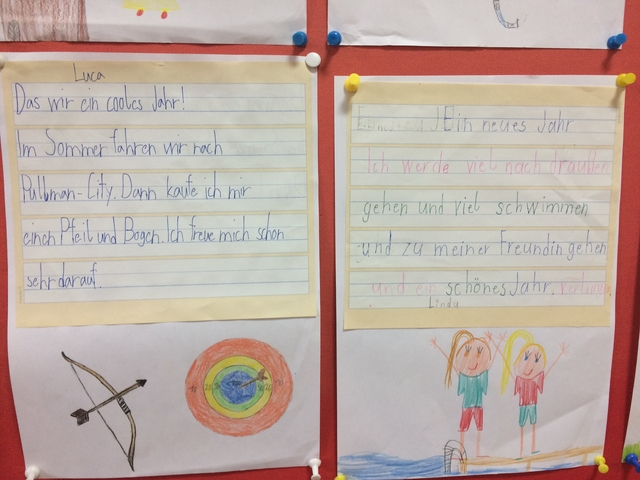 Luca
Das wir ein cooles Jahr!
Im Sommer fahren wir nach
Pullman-City. Dann kaufe ich mir
einen Pfeil und Bogen. Ich freue mich schon
sehr darauf.
Ein neues Jahr
Ich werde viel nach draußen
gehen und viel schwimmen
und zu meiner Freundin gehen
und ein schönes Jahr.
Linda